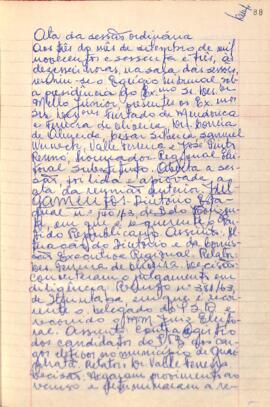 88
Ata da sessão ordinária
Aos três do mês de setembro de mil
novecentos e sessenta e três, às
dezesseis horas, na sala das sessões,
reuniu-se o Egrégio Tribunal sob
a presidência do Exmo. Sr. Des.
Mello Júnior, presentes os Exmos.
Srs. Furtado de Mendonça
e Ferreira de Oliveira, Drs. Corrêa
de Almeida, Cesar Silveira, Samuel
Wunsch, Valle Ferreira e José
Procurador Regional Elei-
toral Substituto. Aberta a ses-
são, foi lida e aprovada a
ata da reunião anterior. Jul-
gamentos: Diretório Esta-
dual nº 150/63, de Belo Horizon-
te, em que é requerente o Par-
tido Republicano. Assunto:
do Diretório e da Comissão
Executiva Regional. Relator:
Des. Ferreira de Oliveira. Decisão:
Converteram o julgamento em
diligência. Recurso nº 381/63,
de em que é recor-
rente o delegado do P.S.D. e
recorrido o MM. Juiz Eleito-
ral. Assunto: Contra registro
dos candidatos do P.T.B. aos car-
gos eletivos no município de
Relator: Dr. Valle Ferreira.
Decisão: Negaram provimento ao
recurso e determinaram a re-